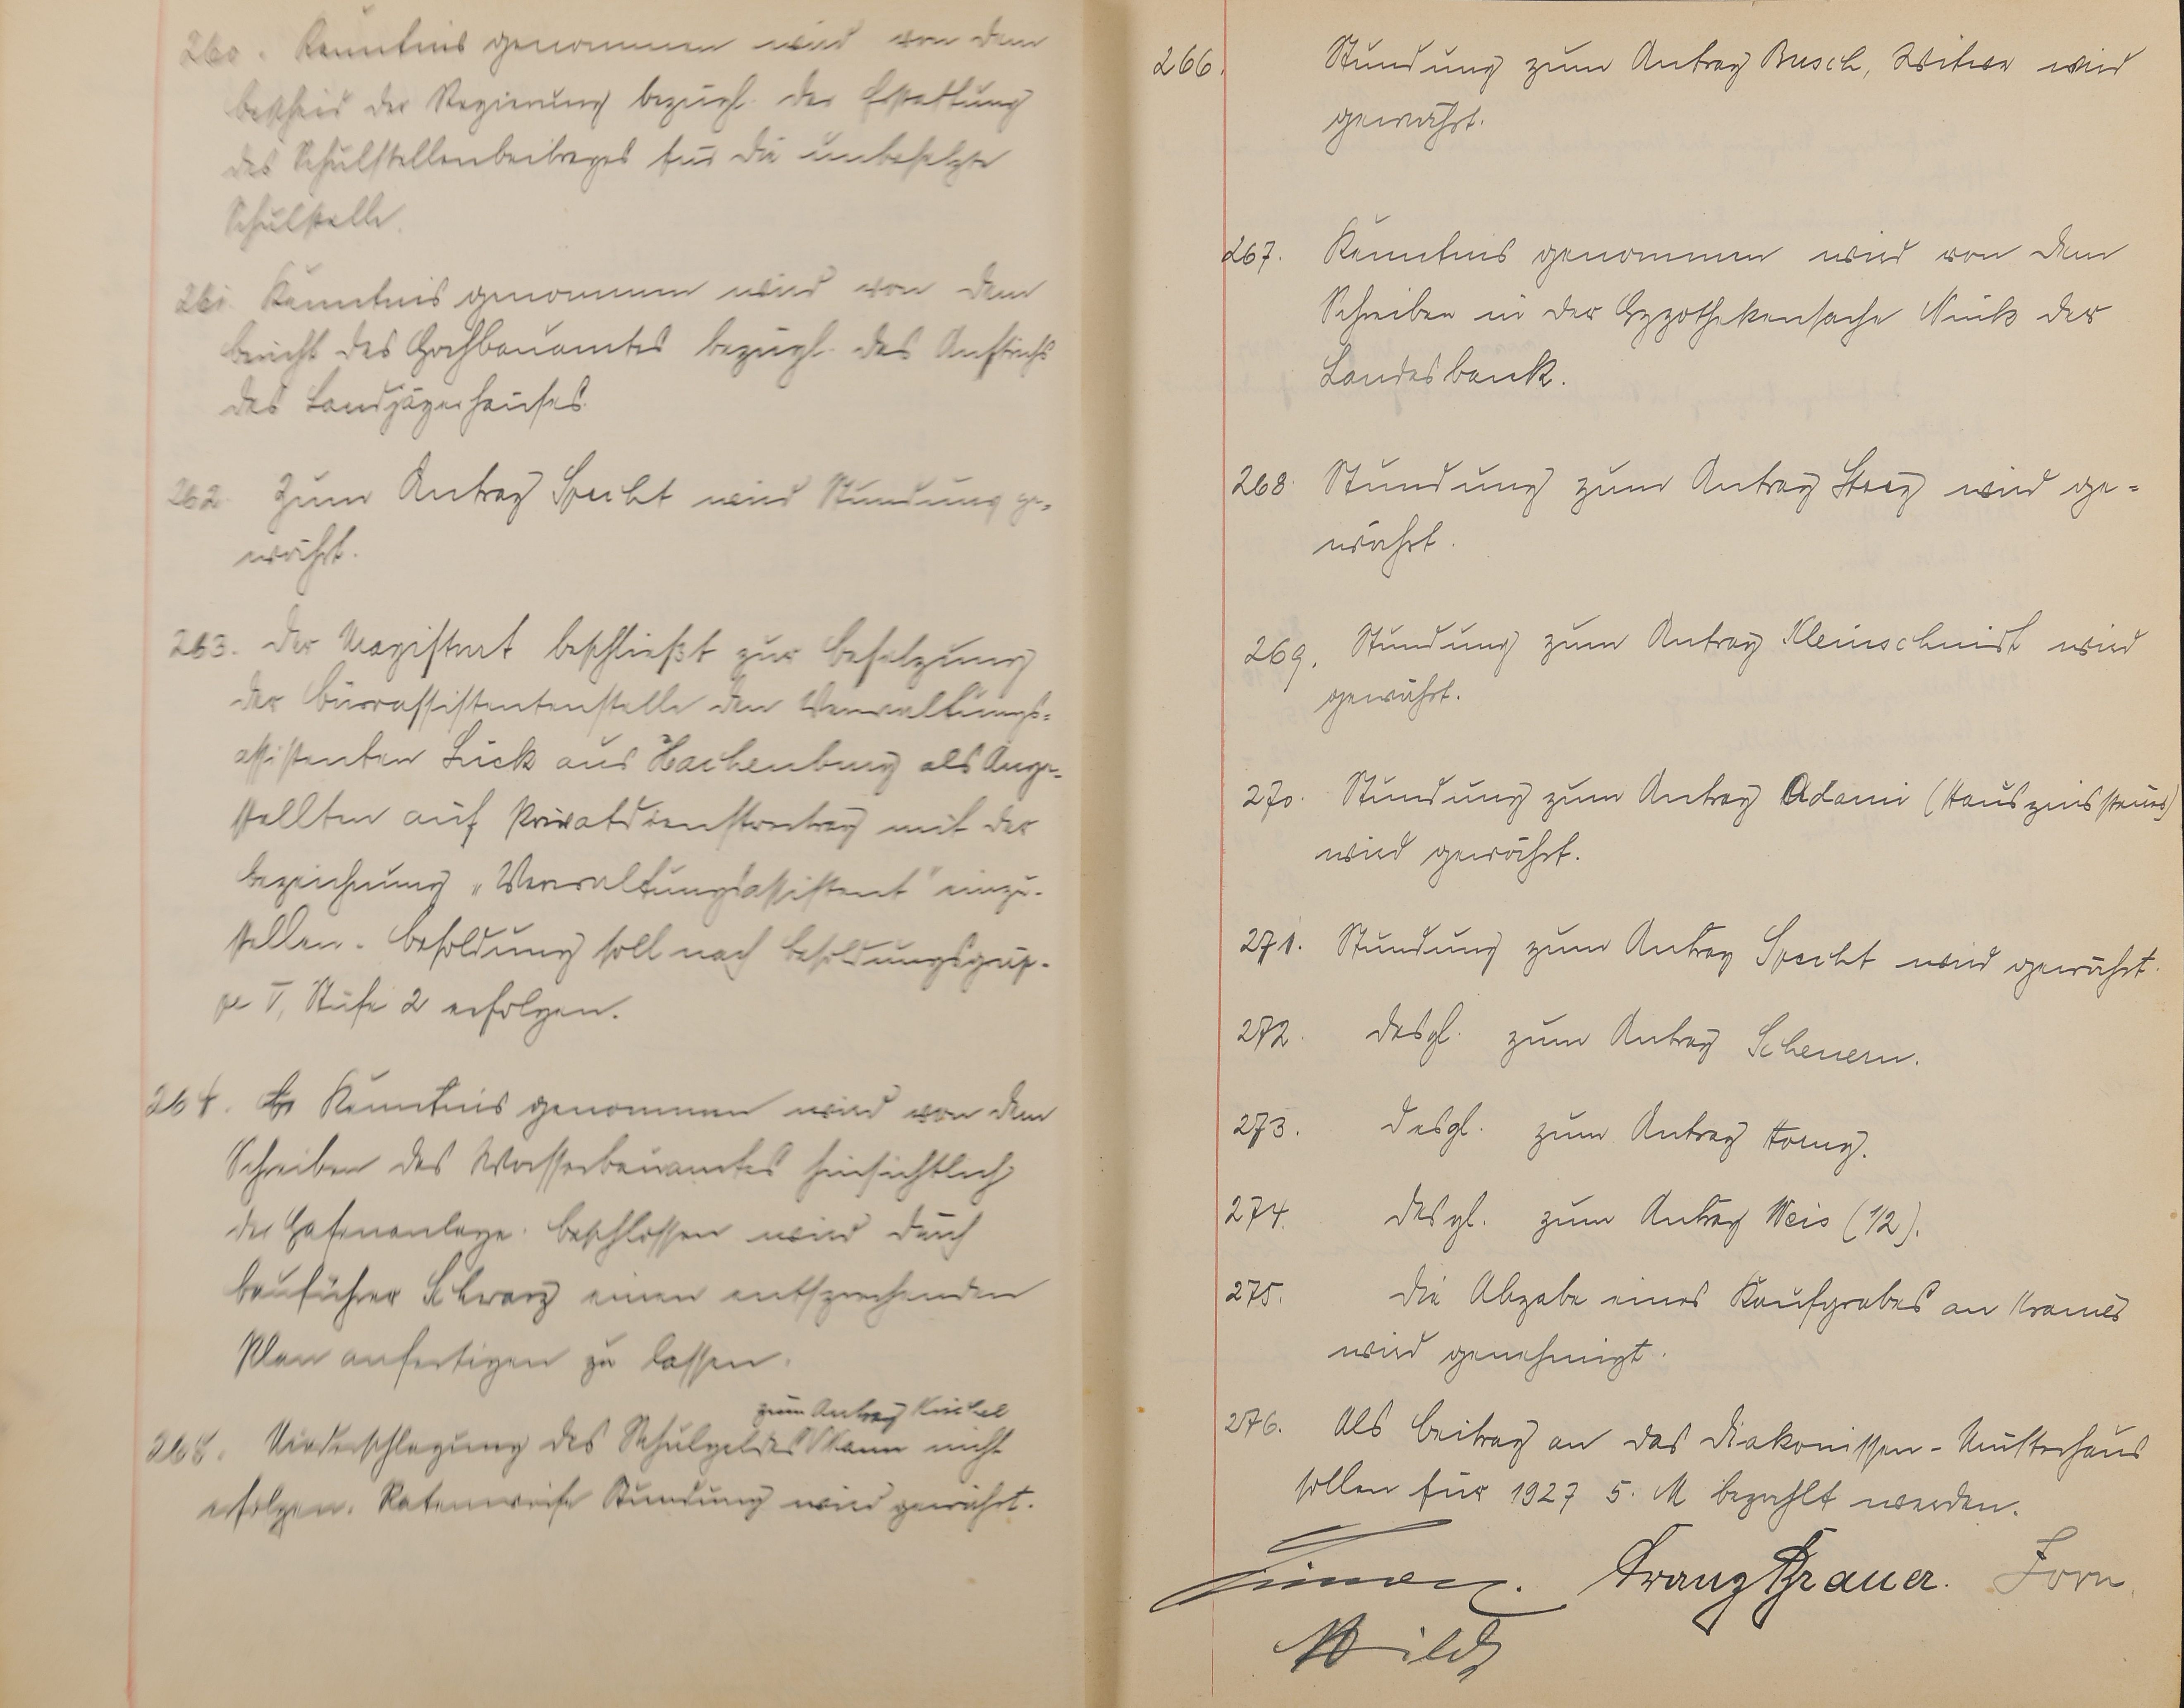 260. Kenntnis genommen wird von dem
Bescheid der Regierung bezügl. der Erstattung
des Schulstellenbeitrages für die unbesetzte
Schulstelle.
261. Kenntnis genommen wird von dem
Bericht des Hochbauamtes bezügl. des Anstrichs
des Landjägerhauses.
262. Zum Antrag Specht wird Stundung ge-
währt.
263. Der Magistrat beschließt zur Besetzung
der Büroassistentenstelle den Verwaltungs-
assistenten Lück aus Hachenburg als Ange-
stellten auf Privatdienstvertrag mit der
Bezeichnung „Verwaltungsassistent" einzu-
stellen. Besoldung soll nach Besoldungsgrup-
pe V, Stufe 2 erfolgen.
264. Kenntnis genommen wird von dem
Schreiben des Wasserbauamtes hinsichtlich
der Hafenanlage. Beschlossen wird durch
Bauführer Schwarz einen entsprechenden
Plan anfertigen zu lassen.
zum Antrag
265. Niederschlagung des Schulgeldes kann nicht
erfolgen. Ratenweise Stundung wird gewährt.
266. Stundung zum Antrag Busch, Witwe wird
gewährt.
267. Kenntnis genommen wird von dem
Schreiben in der Hypothekensache Nink der
Landesbank.
268. Stundung zum Antrag wird ge-
währt.
269. Stundung zum Antrag Kleinschmidt wird
gewährt.
270. Stundung zum Antrag Adami (Hauszinssteuer)
wird gewährt.
271. Stundung zum Antrag Specht wird gewährt.
272. desgl. zum Antrag Scheuern.
273. desgl. zum Antrag Horny.
274. desgl. zum Antrag Weis (1/2).
275. Die Abgabe eines Kaufgrabes an Kramer
wird genehmigt.
276. Als Beitrag an das Diakonissen-Mutterhaus
sollen für 1927 5. M bezahlt werden.
Franz Schrauer. Forn.
Wild